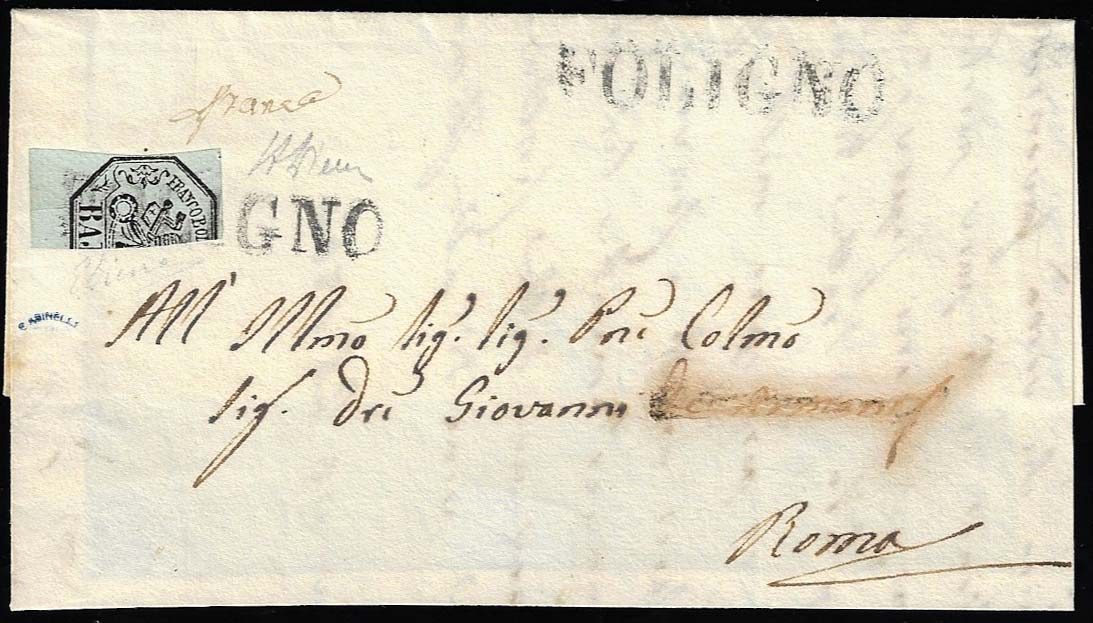 FOLIGNO
franca
FRANCO BOL
BAJ
GNO
All' Illmo Sig. Sig. Prē Colmo
Sig. Drē Giovanni
Roma